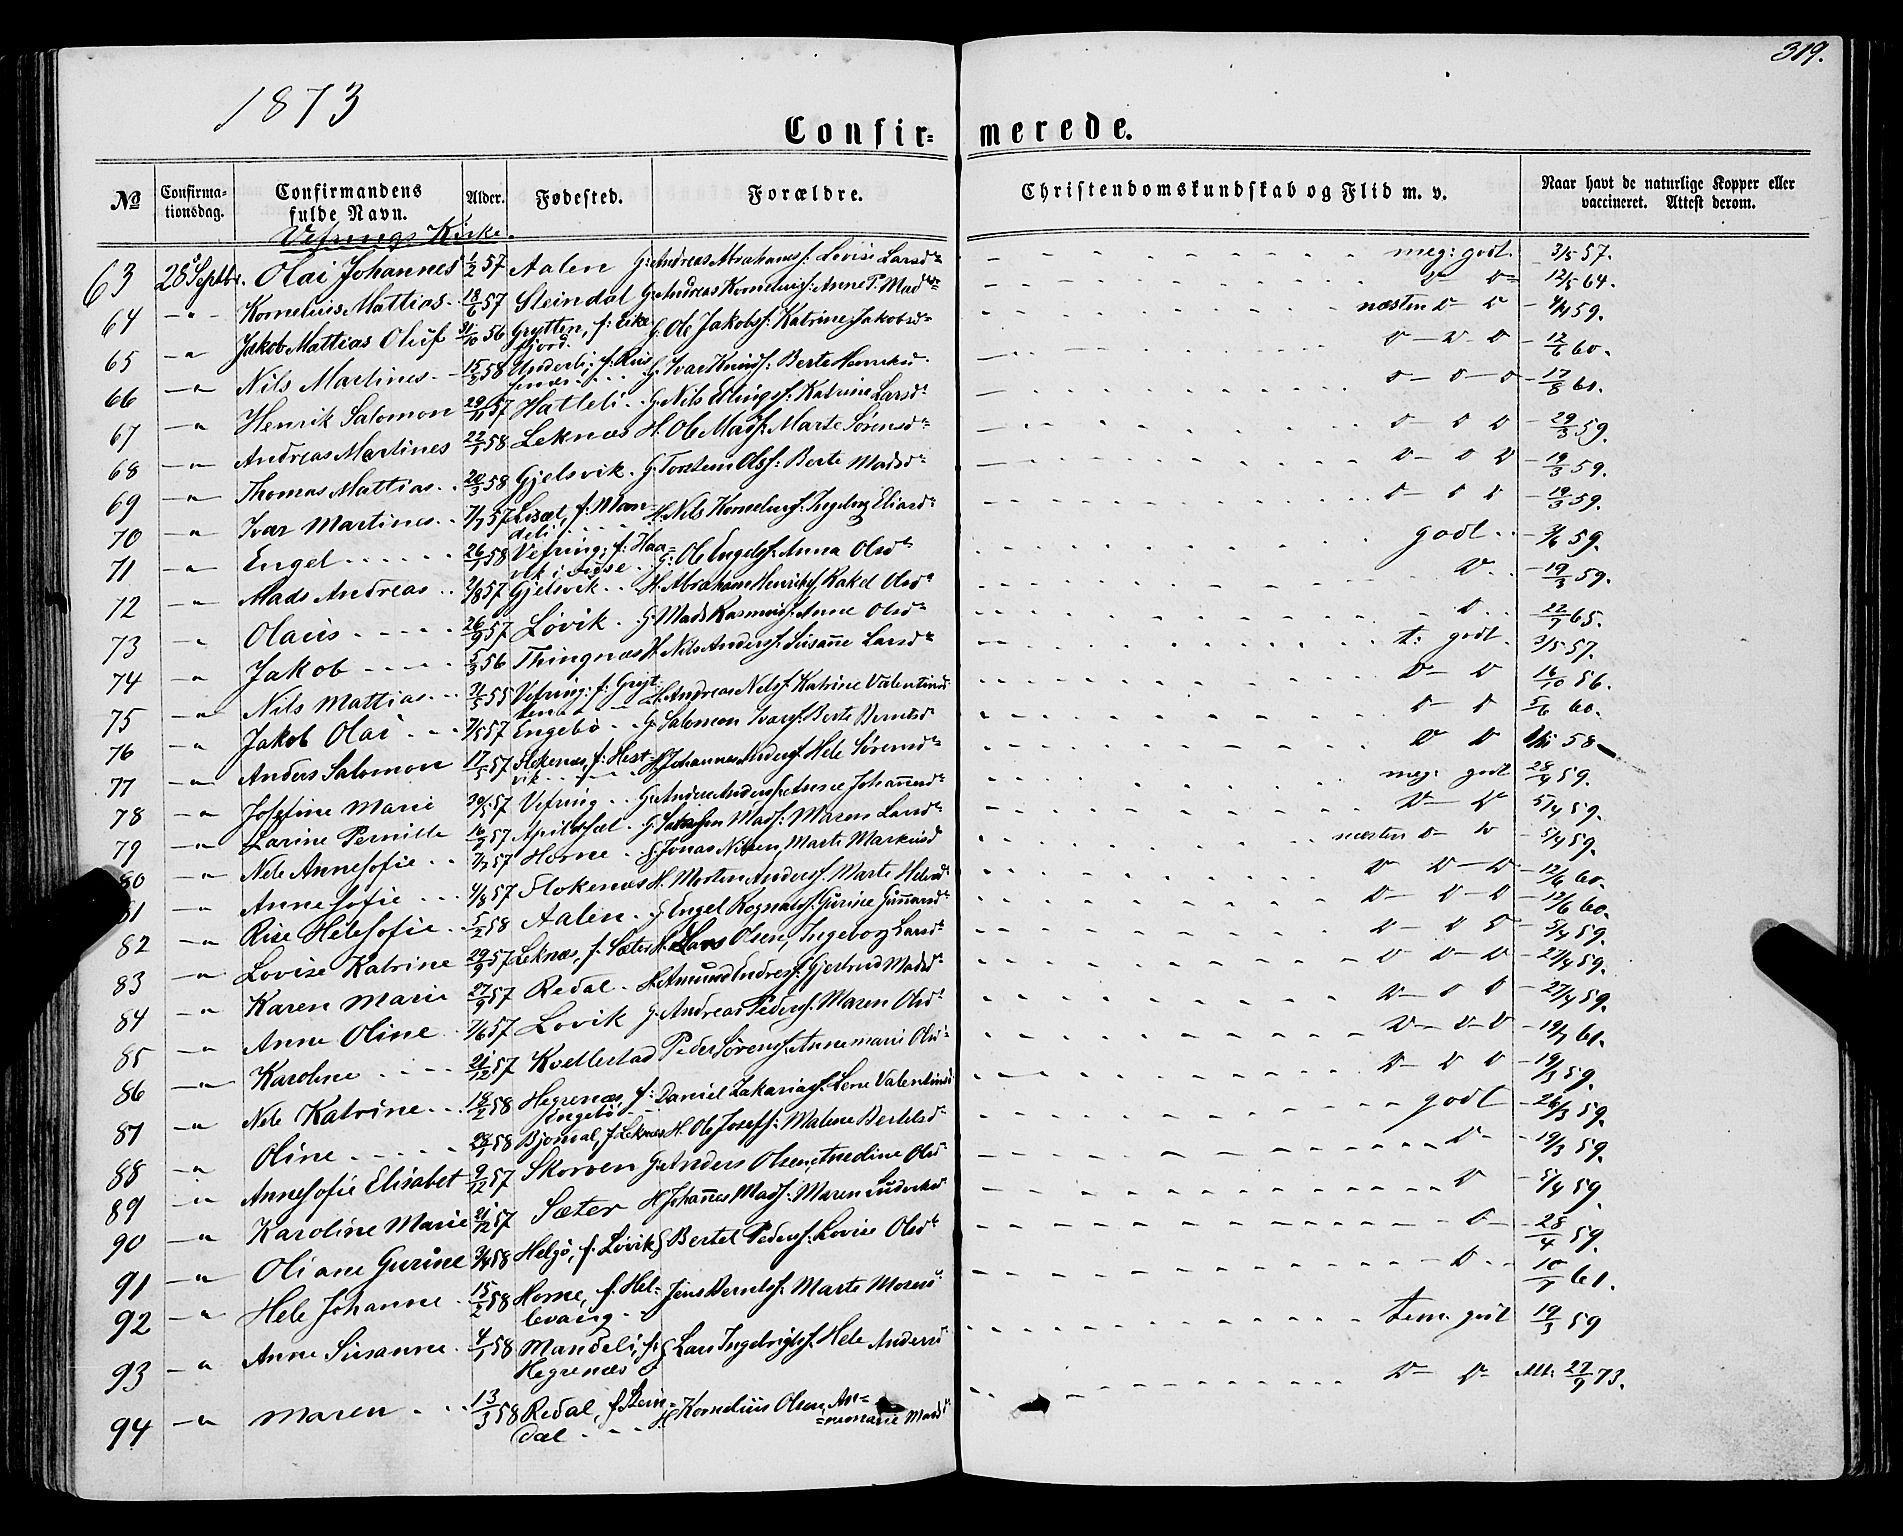 319.
1873
Confir= merede.
№ Confirma-tionsdag. Confirmandens fulde Navn. Alder. Fødested. Forældre. Christendomskundskab og Flid m. v. Naar havt de naturlige Kopper eller vaccineret. Attest derom.
Vefrings Kirke.
63 28 Septbr. Olai Johannes 1/2 57 Aalen G: Andreas Abrahams: Lovise Larsd meg: godt. 3/5 57.
64 -"- Kornelius Mattias 18/6 57 Steindal G: Andreas Kornelius: Anne P. Mads v- v- 12/5 64.
65 -" Jakob Mattias Oluf 31/10 56 Grytten, f: Eikefjord. G: Ole Jakobsf: Katrine Jakobsd næsten v- v 4/4 59.
66 -" Nils Martines 15/2 58 Underli, f: G. Ivar Knuds: Berte Henriksd v- v- v 12/6 60.
67 -" Henrik Salomon 29/11 57 Hatleli G: Nils Erlingsf: Katrine Larsd v- v- v 17/8 60.
68 -" Andreas Martines 22/1 58 Leknæs H. Ole Madsf: Marte Sørensd v- v v 29/3 59.
69 -" Thomas Mattias 20/3 58 Gjelsvik G: Torstein Olsf: Berte Madsd v- v v 19/3 59.
70 -" Ivar Martines 7/7 57 f: Mandeli H. Nils Kornelius: Ingeborg Eliasd v- v v 19/3 59.
71 -" Engel 26/1 58 Vefring, f: G: Ole Engelsf: Anna Olsd godt 3/6 59.
72 -" Mads Andreas 2/8 57 Gjelsvik H. Abraham Henriksf Rakel Olsd v. 19/3 59.
73 -" Olaus 26/9 57 Lovik G. Mads Rasmusf: Anne Olsd v. 22/7 65.
74 -" Jakob 5/3 56 Thingnæs H. Nils Andersf: Susanne Larsd t: godt 3/5 57.
75 -" Nils Mattias 2/5 55 Vefring: f: Grytten H. Andreas Nelsf. Katrine Valentinsd v- v 16/10 56.
76 -" Jakob Olai 7/5 57 Engebø G: Salomon Ivarsf: Berte Berntsd v- v 5/6 60.
77 -" Anders Salomon 17/5 57 Flekenæs, f: Hestvik H. Johannes Andersf Hele Sørensd v v 58
78 -" Josefine Marie 29/5 57 Vefring G: Andreas Andersf: Anne Johannesd meg: godt 28/4 59.
79 -" Larine Pernille 16/9 57 Apilsæl G. Madsf: Maren Larsd v- v 5/4 59.
80 -" Nele Annesofie 7/7 57 Horne G Jonas Nilsen, Marte Markusd næsten v- v 5/4 59.
81 -" Anne Sofie 4/8 57 Flokenæs H. Morten Andersf. Marte Helesd v v- v 12/6 60.
82 -" Rise Helesofie 5/2 58 Aalen G Engel Rognaldsf. Gurine Gunnarsd v- v- v 12/6 60.
83 -" Lovise Katrine 29/9 57 Leknæs, f. Sæter H. Lars Olsen, Ingeborg Larsd v- v v 5/4 59.
84 -" Karen Marie 27/9 57 Redal H. Amund Endresf: Gjertrud Madsd v v- v 27/4 59.
85 -" Anne Oline 7/6 57 Lovik G. Andreas Pedersf. Maren Olsd v- v v 27/4 59.
86 -" Karoline 21/12 57 Kvellestad Peder Sørensf. Annemarie Olsd v- v- v 19/7 61.
87 -" Nele Katrine 18/2 58 Hegrenæs, f: Engebø Daniel Zakariasf. Lene Valentinsd v- v v 19/3 59.
88 -" Oline 28/1 58 Bjordal, f Leknæs H. Ole Josefsf: Malene Bertelsd godt 26/3 59.
89 -" Annesofie Elisabet 9/12 57 Skorven G: Anders Olsen, Anedine Olsd v- 19/3 59.
90 -" Karoline Marie 21/12 57 Sæter H Johannes Madsf: Maren v 5/4 59.
91 -" Oliane Gurine 3/4 58 Helgø, f. Lovik G Bertel Pedersf. Lovise Olsd v- 28/4 59.
92 -" Hele Johanne 15/2 58 Horne, f. Hellevang Jens Berntsf: Marte Monsd v 10/7 61.
93 -" Anne Susanne 4/1 58 Mandeli, f: Hegrenæs G Lars Ingebrigtsf. Hele Andersd tem. godt 19/3 59
94 -" Maren 13/3 58 Redal, f Steindal H Kornelius Olsen, An=nemarie Madsd v- v- Att: 27/9 73.